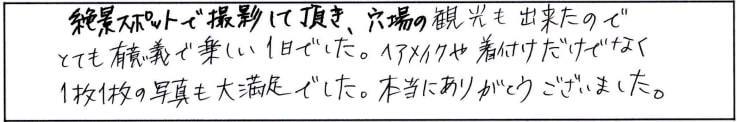 絶景スポットで撮影して頂き、穴場の観光も出来たので
とても有意義で楽しい1日でした。ヘアメイクや着付けだけでなく
1枚1枚の写真も大満足でした。本当にありがとうございました。